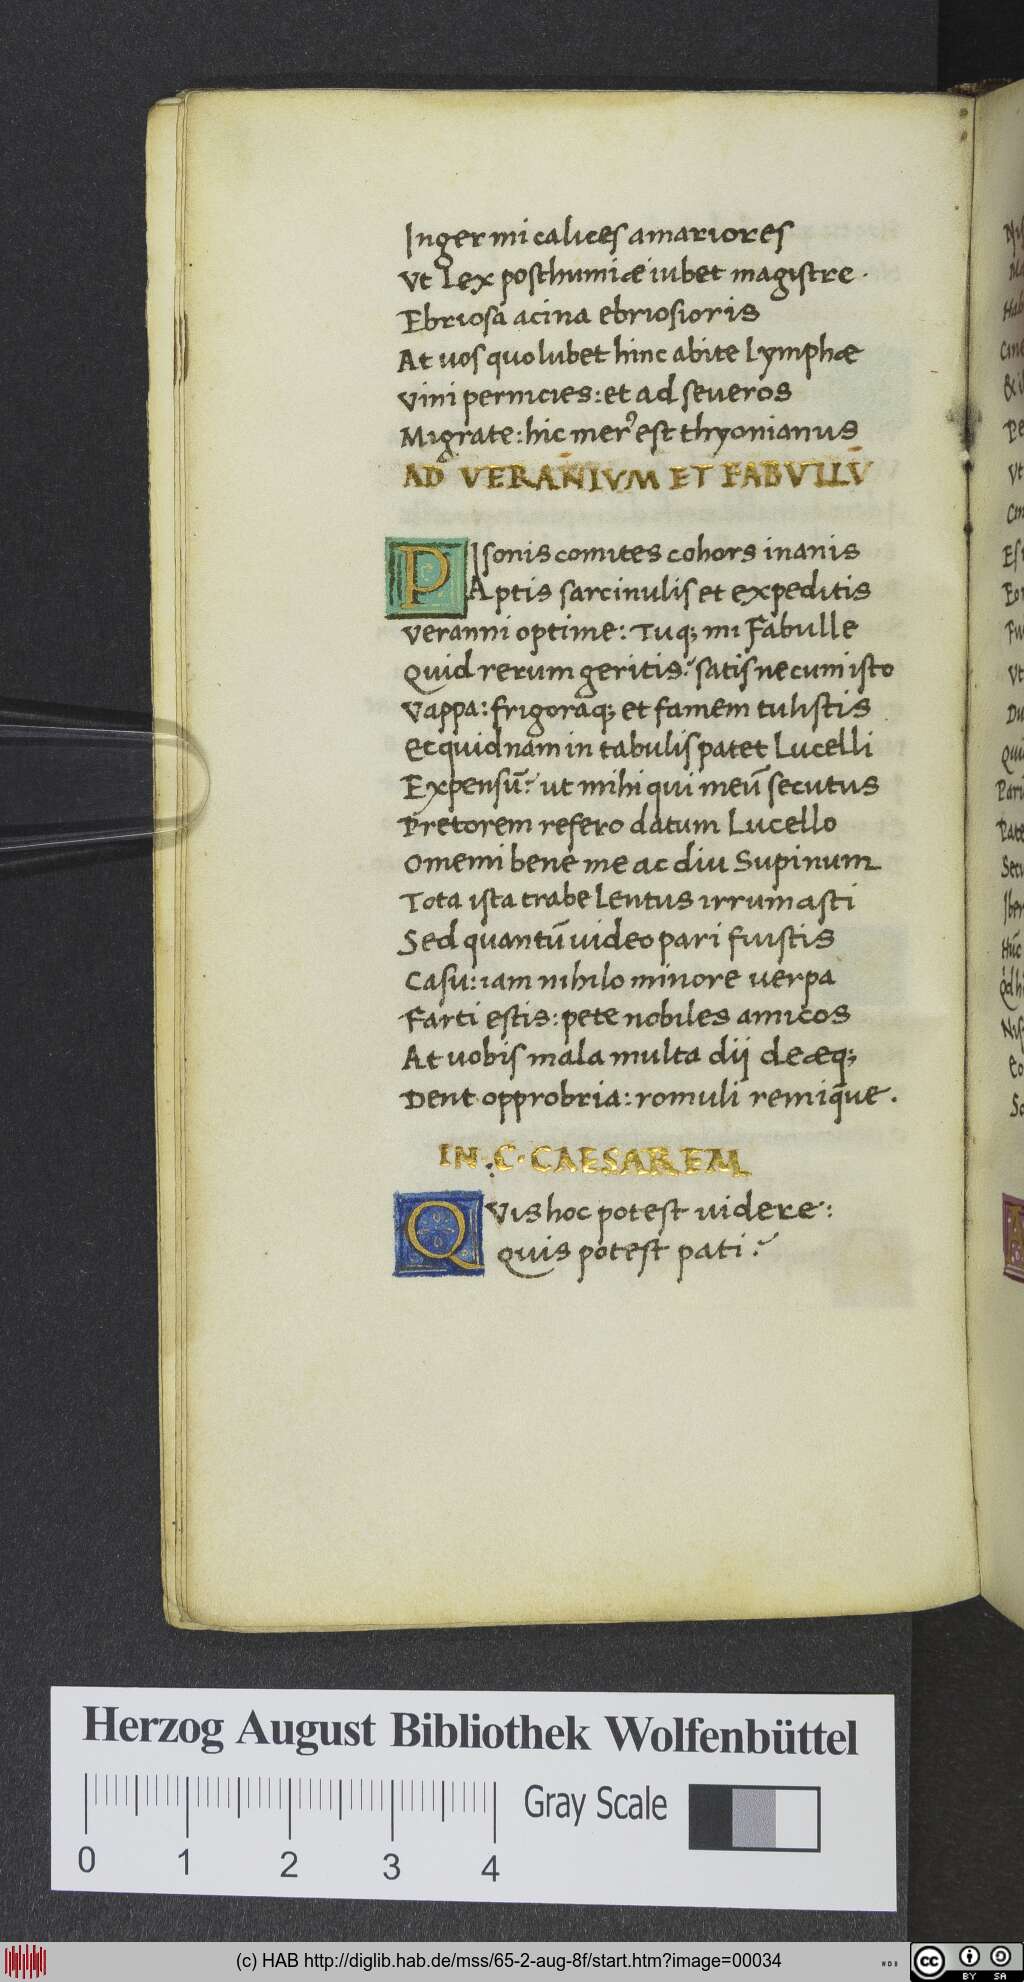 Inger mi calices amariores
Vt Lex posthumiæ iubet magistre ·
Ebriosa acina ebriosioris
At uos quolubet hinc abite Lymphæ
Vini pernicies: et ad seueros
Migrate: hic mer᾽ est thyonianus
AD VERANIVM ET FABVLLV̄
PIsonis comites cohors inanis
Aptis sarcinulis et expeditis
Veranni optime: Tuq; mi Fabulle
Quid rerum geritis? satisne cum isto
Vappa: frigoraq; et famem tulistis
Ecquidnam in tabulis patet Lucelli
Expensū? ut mihi qui meū secutus
Pretorem refero datum Lucello
Omemi bene me ac diu Supinum
Tota ista trabe Lentus irrumasti
Sed quantū uideo pari fuistis
Casu: iam nihilo minore uerpa
Farti estis: pete nobiles amicos
At uobis mala multa dij deæq;
Dent opprobria: romuli remique ·
IN · C · CAESAREM
QVis hoc potest uidere:
Quis potest pati?
Herzog August Bibliothek Wolfenbüttel
Gray Scale
0 1 2 3 4
(c) HAB http://diglib.hab.de/mss/65-2-aug-8f/start.htm?image=00034
cc BY SA